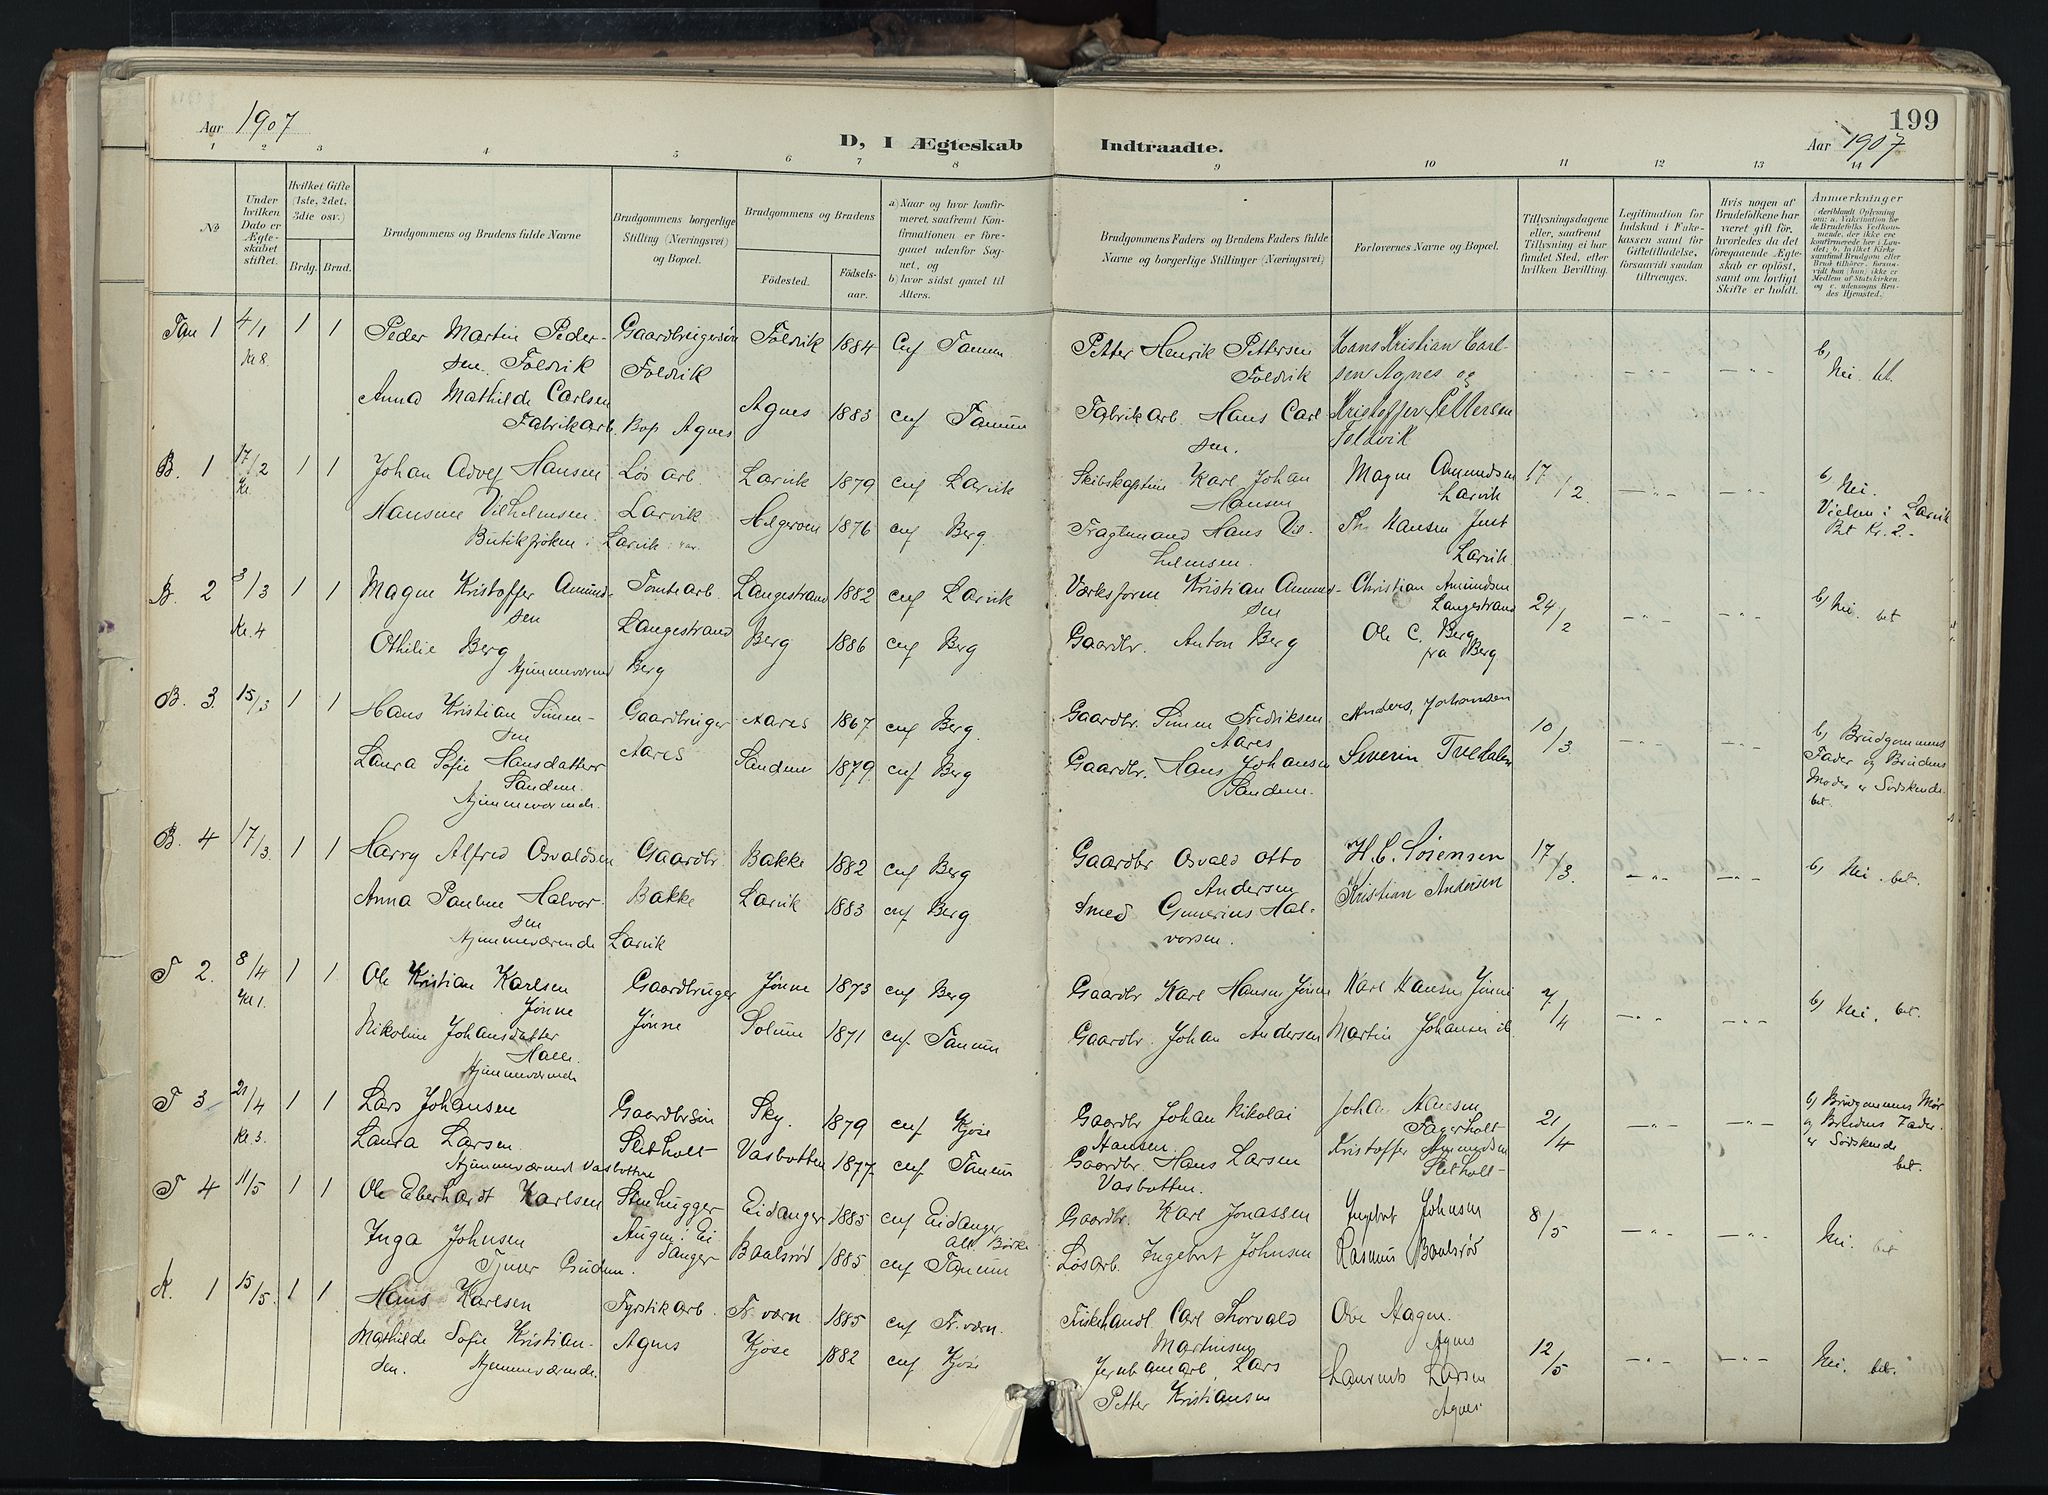 Aar 1907
D, I Ægteskab Indtraadte.
199
Aar 1907
1 2 3 4 5 6 7 8 9 10 11 12 13 14
№
Under hvilken Dato er Ægteskabet stiftet.
Hvilket Gifte (1ste, 2det, 3die osv.)
Brdg. Brud.
Brudgommens og Brudens fulde Navne
Brudgommens borgerlige Stilling (Næringsvei) og Bopæl.
Brudgommens og Brudens
Fødested. Fødselsaar.
a) Naar og hvor konfirmeret, saafremt Konfirmationen er foregaaet udenfor Sognet, og
b) hvor sidst gaaet til Alters.
Brudgommens Faders og Brudens Faders fulde Navne og borgerlige Stillinger (Næringsvei)
Forlovernes Navne og Bopæl.
Tillysningsdagene eller, saafremt Tillysning ei har fundet Sted, efter hvilken Bevilling.
Legitimation for Indskud i Enkekassen samt for Giftetilladelse, forsaavidt saadan tiltrænges.
Hvis nogen af Brudefolkene har været gift før, hvorledes da det foregaaende Ægteskab er opløst, samt om lovligt Skifte er holdt.
Anmærkninger
Tan 1 4/1 Kl 8. 1 1
Peder Martin Pedersen. Foldvik Gaardbrugersøn Foldvik Foldvik 1884 cnf Tanum
Petter Henrik Pettersen Foldvik Hans Kristian Carlsen Agnes og
b) Nei. bet.
Anna Mathilde Carlsen Fabrikarb. Bop Agnes Agnes 1883 cnf Tanum
Fabrikarb. Hans Carlsen. Kristoffer Pettersen Foldvik
B. 1 17/2 Kl. 1 1
Johan Adv Hansen Løsarb. Larvik Larvik 1879 cnf Larvik
Skibskaptein Karl Johan Hansen Magne Amundsen Larvik 17/2
b) Nei. Vielsen i Larvik Bet Kr. 2.-
Hansine Vilhelmsen. Butikfrøken i Larvik Helgeroen 1876 cnf Berg.
Hans Vilhelmsen. Th. Hansen Larvik.
B. 2 3/3 Kl. 4 1 1
Magne Kristoffer Amundsen Tomtearb. Langestrand Langestrand 1882 cnf Larvik
Værksform. Kristian Amundsen Christian Amundsen Langestrand 24/2
b) Nei. bet
Othilie Berg Hjemmeværend Berg Berg 1886 cnf Berg
Gaardbr. Anton Berg Ole C. Berg fra Berg.
B. 3. 15/3 1 1
Hans Kristian Simensen Gaardbruger Aares Aares 1867 cnf Berg.
Gaardbr. Simen Fredriksen Aares Anders Johansen 10/3
b) Brudgommens Fader og Brudens Moder er Sødskende. bet.
Laura Sofie Hansdatter Sandem. Hjemmeværende. Sandem 1879. cnf Berg
Gaardbr. Hans Johansen Sandem. Severin Tvedalen
B. 4 17/3. 1 1
Harry Alfred Osvaldsen Gaardbr. Bakke Bakke 1882 cnf Berg
Gaardbr Osvald Otto Andersen H. C. Sørensen 17/3.
b) Nei. bet.
Anna Pauline Halvorsen Hjemmeværende Larvik Larvik 1883 cnf Berg.
Smed Gunerius Halvorsen. Kristian Andersen
T 2. 8/4 Kl 1. 1 1
Ole Kristian Karlsen Jønne Gaardbruger Jønne Jønne 1873 cnf Berg
Gaardbr Karl Hansen Jønne Karl Hansen Jønne 7/4
b) Nei. bet.
Nikoline Johansdatter Halle. Hjemmeværende Solum 1871 cnf. Tanum
Gaardbr. Johan Andersen Martin Johansen
T 3 21/4 Kl. 3. 1 1
Lars Johansen Gaardbrsøn Sletholt Sky. 1879 cnf Kjøse
Gaardbr Johan Nikolai Hansen. Johan Hansen Fagerholt 21/4
b) Brudgommens Mor og Brudens Fader er Sødskende bet.
Laura Larsen. Hjemmeværend Vasbotten Vasbotten 1877. cnf Tanum
Gaardbr. Hans Larsen Vasbotten. Kristoffer Amundsen Sletholt
T 4 11/5 1 1
Ole Eberhardt Karlsen Stenhugger Eidanger Eidanger 1885 cnf Eidanger
Gaardbr. Karl Jonassen Ingebret Johnsen 8/5
Nei. bet
Inga Johnsen Tjener Gudem. Baalsrød 1885. cnf Tanum
Løsarb. Ingebret Johnsen Rasmus Baalsrød
K. 1 15/5. 1 1
Hans Karlsen Fyrstikarb. Agnes Fr.værn. 1885 cnf Fr.værn.
Fiskehandl. Carl Thorvald Martinsen Ove Aagen. Agnes 12/5
Nei. bet.
Mathilde Sofie Kristiansen. Hjemmeværende. Kjøse 1882 cnf Kjøse
Jernbanearb. Lars Petter Kristiansen Laurents Larsen Agnes